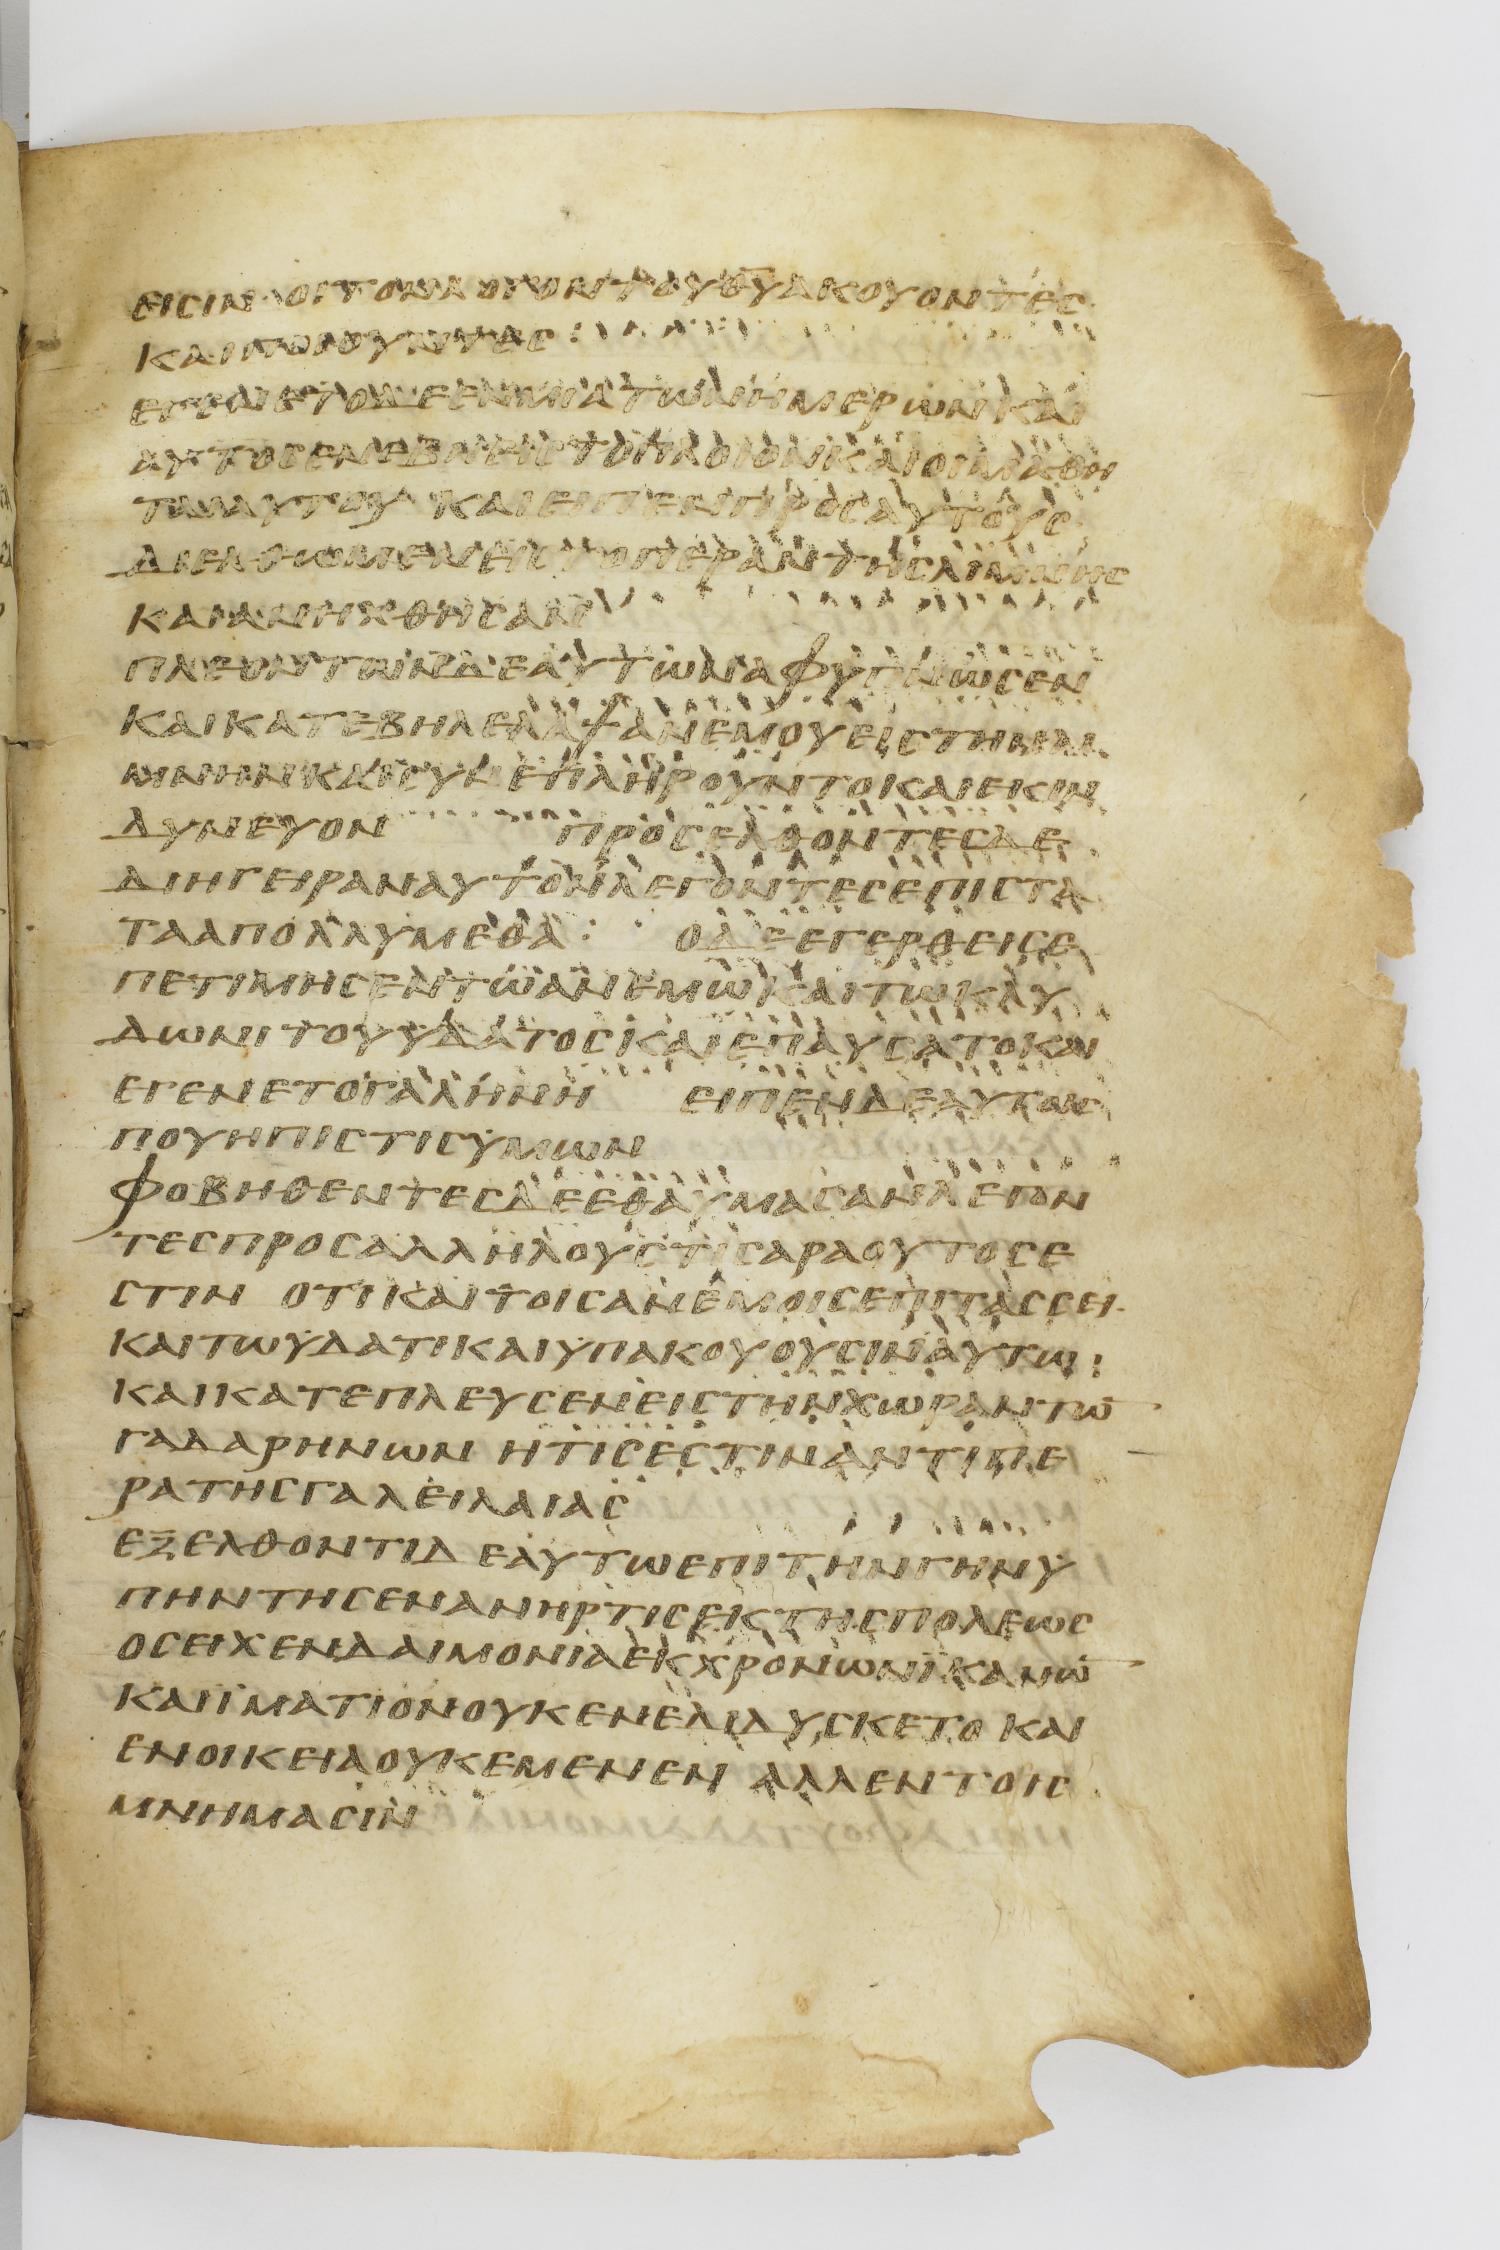 ΕΙΣΙΝ ΟΙ ΤΟΝ ΛΟΓΟΝ ΤΟΥ ΘΥ ΑΚΟΥΟΝΤΕΣ
ΚΑΙ ΠΟΙΟΥΝΤΕΣ
ΕΓΕΝΕΤΟ ΔΕ ΕΝ ΜΙΑ ΤΩΝ ΗΜΕΡΩΝ ΚΑΙ
ΑΥΤΟΣ ΕΝΕΒΗ ΕΙΣ ΠΛΟΙΟΝ ΚΑΙ ΟΙ ΜΑΘΗ
ΤΑΙ ΑΥΤΟΥ ΚΑΙ ΕΙΠΕΝ ΠΡΟΣ ΑΥΤΟΥΣ
ΔΙΕΛΘΩΜΕΝ ΕΙΣ ΤΟ ΠΕΡΑΝ ΤΗΣ ΛΙΜΝΗΣ
ΚΑΙ ΑΝΗΧΘΗΣΑΝ
ΠΛΕΟΝΤΩΝ ΔΕ ΑΥΤΩΝ ΑΦΥΠΝΩΣΕΝ
ΚΑΙ ΚΑΤΕΒΗ ΛΕΛΑΨ ΑΝΕΜΟΥ ΕΙΣ ΤΗΝ ΛΙ
ΜΝΗΝ ΚΑΙ ΣΥΝΕΠΛΗΡΟΥΝΤΟ ΚΑΙ ΕΚΙΝ
ΔΥΝΕΥΟΝ ΠΡΟΣΕΛΘΟΝΤΕΣ ΔΕ
ΔΙΗΓΕΙΡΑΝ ΑΥΤΟΝ ΛΕΓΟΝΤΕΣ ΕΠΙΣΤΑ
ΤΑ ΑΠΟΛΛΥΜΕΘΑ : Ο ΔΕ ΕΓΕΡΘΕΙΣ Ε
ΠΕΤΙΜΗΣΕΝ ΤΩ ΑΝΕΜΩ ΚΑΙ ΤΩ ΚΛΥ
ΔΩΝΙ ΤΟΥ ΥΔΑΤΟΣ ΚΑΙ ΕΠΑΥΣΑΤΟ ΚΑΙ
ΕΓΕΝΕΤΟ ΓΑΛΗΝΗ ΕΙΠΕΝ ΔΕ ΑΥΤΟΙΣ
ΠΟΥ Η ΠΙΣΤΙΣ ΥΜΩΝ
ΦΟΒΗΘΕΝΤΕΣ ΔΕ ΕΘΑΥΜΑΣΑΝ ΛΕΓΟΝ
ΤΕΣ ΠΡΟΣ ΑΛΛΗΛΟΥΣ ΤΙΣ ΑΡΑ ΟΥΤΟΣ Ε
ΣΤΙΝ ΟΤΙ ΚΑΙ ΤΟΙΣ ΑΝΕΜΟΙΣ ΕΠΙΤΑΣΣΕΙ
ΚΑΙ ΤΩ ΥΔΑΤΙ ΚΑΙ ΥΠΑΚΟΥΟΥΣΙΝ ΑΥΤΩ
ΚΑΙ ΚΑΤΕΠΛΕΥΣΕΝ ΕΙΣ ΤΗΝ ΧΩΡΑΝ ΤΩ̅
ΓΑΔΑΡΗΝΩΝ ΗΤΙΣ ΕΣΤΙΝ ΑΝΤΙΠΕ
ΡΑ ΤΗΣ ΓΑΛΕΙΛΑΙΑΣ
ΕΞΕΛΘΟΝΤΙ ΔΕ ΑΥΤΩ ΕΠΙ ΤΗΝ ΓΗΝ Υ
ΠΗΝΤΗΣΕΝ ΑΝΗΡ ΤΙΣ ΕΚ ΤΗΣ ΠΟΛΕΩΣ
ΟΣ ΕΙΧΕΝ ΔΑΙΜΟΝΙΑ ΕΚ ΧΡΟΝΩΝ ΙΚΑΝΩ̅
ΚΑΙ ΙΜΑΤΙΟΝ ΟΥΚ ΕΝΕΔΙΔΥΣΚΕΤΟ ΚΑΙ
ΕΝ ΟΙΚΕΙΑ ΟΥΚ ΕΜΕΝΕΝ ΑΛΛ ΕΝ ΤΟΙΣ
ΜΝΗΜΑΣΙΝ